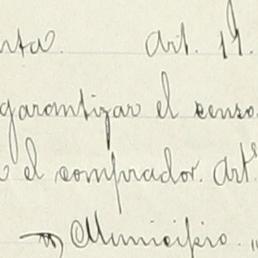 nta. Art. 19.
garantizar el censo.
o el comprador. Arts
Municipio. "